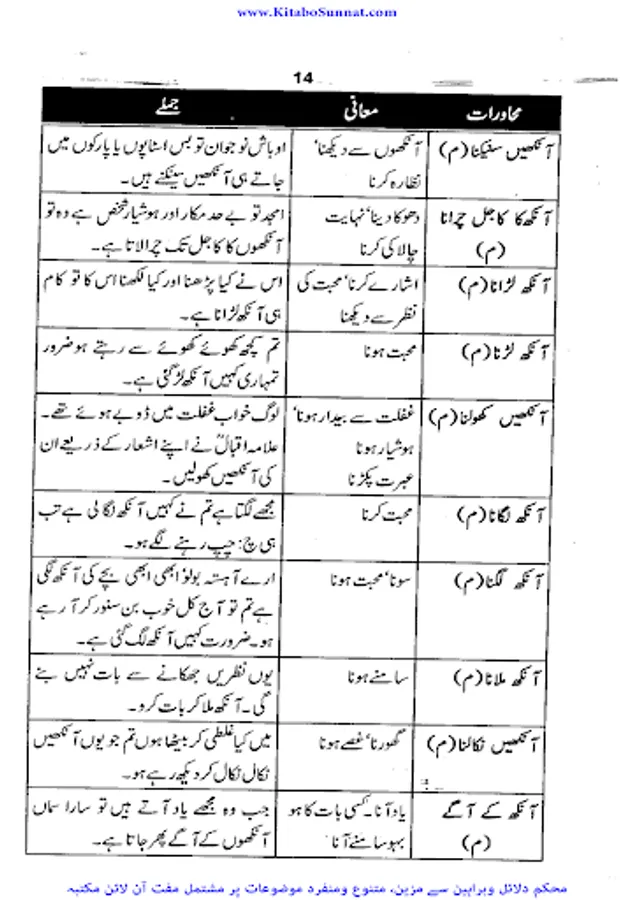 www.KitaboSunnat.com
14
محاورات معانی جملے
آنکھیں سینکنا (م) آنکھوں سے دیکھنا‘ اوباش نوجوان تو بس اسٹاپوں یا پارکوں میں
نظارہ کرنا جاتے ہی آنکھیں سینکتے ہیں۔
آنکھ کا کاجل چرانا دھوکا دینا‘ نہایت امجد تو بے حد مکار اور ہوشیار شخص ہے وہ تو
(م) چالاکی کرنا آنکھوں کا کاجل تک چرا لاتا ہے۔
آنکھ لڑانا (م) اشارے کرنا‘ محبت کی اس نے کیا پڑھنا اور کیا لکھنا اس کا تو کام
نظر سے دیکھنا ہی آنکھ لڑانا ہے۔
آنکھ لڑنا (م) محبت ہونا تم کچھ کھوئے کھوئے سے رہتے ہو ضرور
تمہاری کہیں آنکھ لڑ گئی ہے۔
آنکھیں کھولنا (م) غفلت سے بیدار ہونا‘ لوگ خواب غفلت میں ڈوبے ہوئے تھے۔
ہوشیار ہونا علامہ اقبالؒ نے اپنے اشعار کے ذریعے ان
عبرت پکڑنا کی آنکھیں کھولیں۔
آنکھ لگانا (م) محبت کرنا مجھے لگتا ہے تم نے کہیں آنکھ لگا لی ہے تب
ہی چپ چپ رہنے لگے ہو۔
آنکھ لگنا (م) سونا‘ محبت ہونا ارے آہستہ بولو ابھی ابھی بچے کی آنکھ لگی
ہے تم تو آج کل خوب بن سنور کر آ رہے
ہو۔ ضرورت کہیں آنکھ لگ گئی ہے۔
آنکھ ملانا (م) سامنے ہونا یوں نظریں جھکانے سے بات نہیں بنے
گی۔ آنکھ ملا کر بات کرو۔
آنکھیں نکالنا (م) گھورنا‘ غصے ہونا میں کیا غلطی کر بیٹھا ہوں تم جو یوں آنکھیں
نکال نکال کر دیکھ رہے ہو۔
آنکھ کے آگے یاد آنا۔ کسی بات کا ہو جب وہ مجھے یاد آتے ہیں تو سارا سماں
(م) بہو سامنے آنا آنکھوں کے آگے پھر جاتا ہے۔
محکم دلائل وبراہین سے مزین، متنوع ومنفرد موضوعات پر مشتمل مفت آن لائن مکتبہ